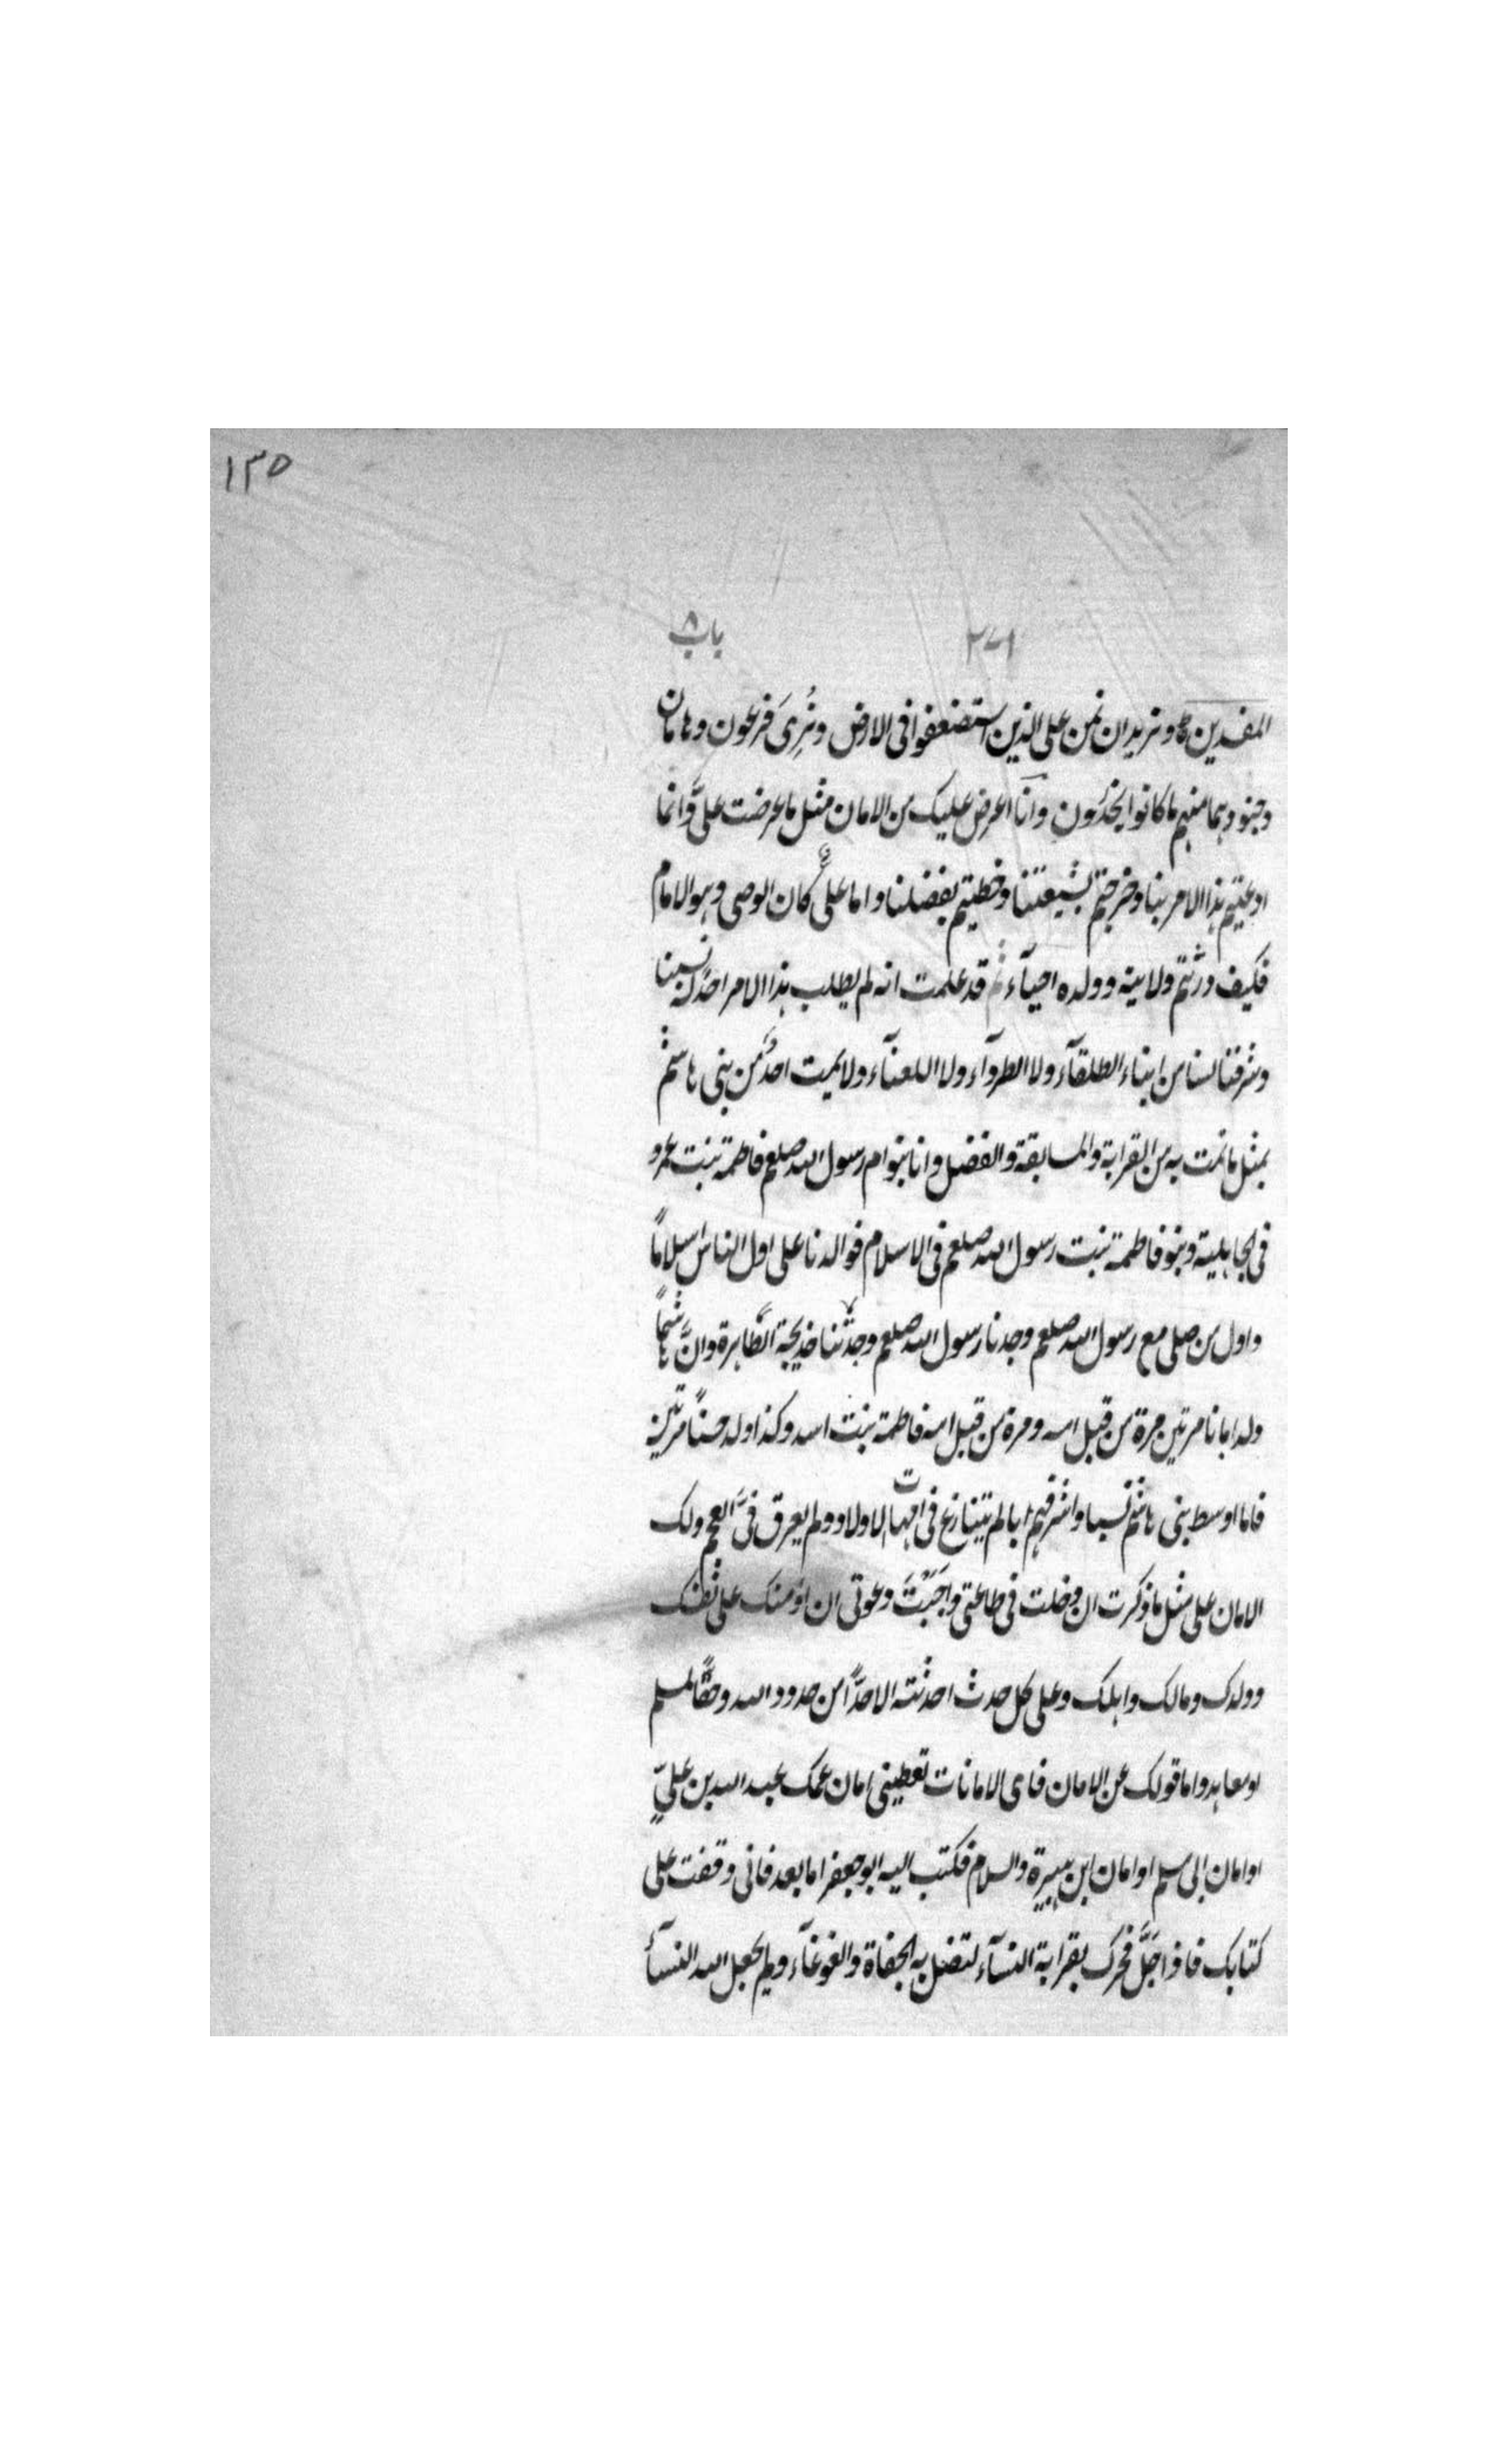 ١٣٥
٢٧١ باب ٨
المفسدين ونريد ان نمن على الذين استضعفوا فى الارض ونُرِىَ فرعون وهامان
وجنودهما منهم ما كانوا يحذرُونِ وانا اعرض عليك من الامان مثل ما عرضت علىَّ وانما
ادعيتم هذا الامر بنا وخرجتم بشيعتنا وخطيتم بفضلنا واما علىٌّ كان الوصى وهو الامام
فكيف ورثتم ولايته وولده احيآء ثم قد علمت انه لم يطلب هذا الامر احدٌ له نسبنا
وشرفنا لسنا من ابناء الطلقآء ولا الطردآء ولا اللعنآء ولا يمت احدٌ من بنى هاشم
بمثل ما نمت به من القرابة والسابقة والفضل وانا بنو ام رسول الله صلعم فاطمة بنت عمرو
فى الجاهلية وبنو فاطمة بنت رسول الله صلعم فى الاسلام فوالدنا على اول الناس اسلامًا
واول من صلى مع رسول الله صلعم وجدنا رسول الله صلعم وجدّتنا خديجة الطَّاهرة وانَّ هاشمًا
ولد ابانا مرتين مرة من قبل امه ومرة من قبل امه فاطمة بنت اسد وكذا ولد حسنًا مرتين
فانا اوسط بنى هاشم نسبا واشرفهم ابا لم يتنازع فى امهات الاولاد ولم يعرق فىَّ العجم ولك
الامان على مثل ما ذكرت ان دخلت فى طاعتى واجَبْتَ دعوتى ان اؤمنك على نفسك
وولدك ومالك واهلك وعلى كل حدث احدثته الا حدًّا من حدود الله وحقًّا لمسلم
او معاهد واما قولك عن الامان فاى الامانات تعطينى امان عمك عبد الله بن علىٍّ
او امان ابى مسلم او امان ابن هبيرة والسلام فكتب اليه ابو جعفر اما بعد فانى وقفت على
كتابك فاذا جَلَّ فخرك بقرابة النسآء لتضل به الجفاة والغوغآء ولم يجعل الله النسآء